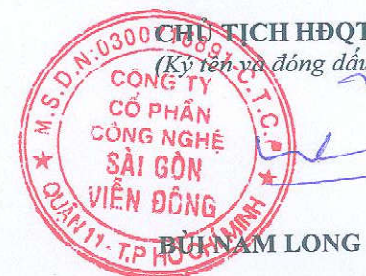 CHỦ TỊCH HĐQT
(Ký tên và đóng dấu
M.S.D.N:0300
C.T.C.P
CÔNG TY
CỔ PHẦN
CÔNG NGHỆ
SÀI GÒN
VIỄN ĐÔNG
QUẬN 11 - T.P HỒ CHÍ MINH
BÙI NAM LONG